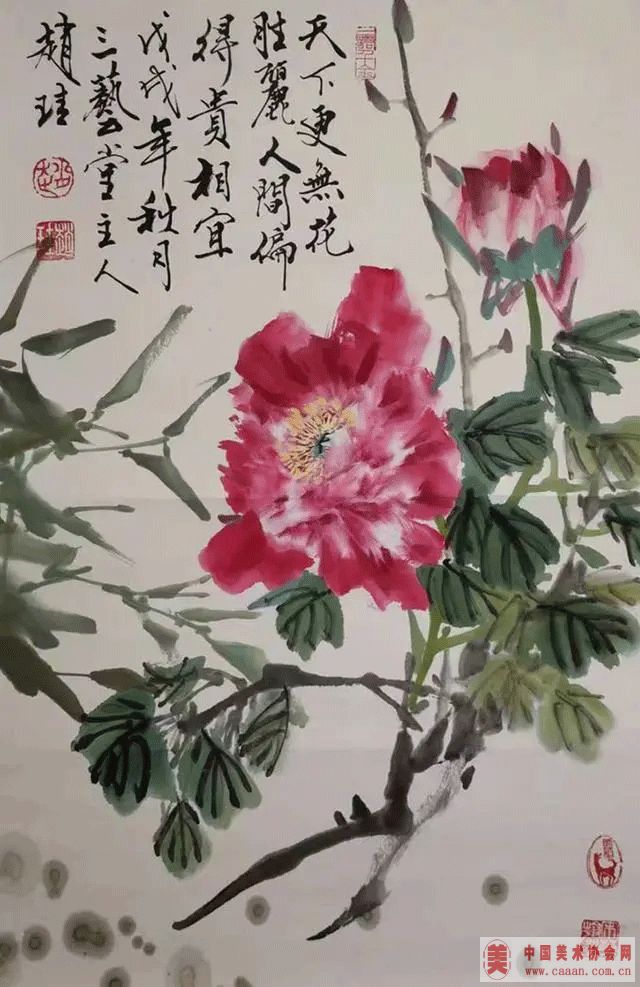 天下更無花
胜麗人間偏
得貴相宜
戊戌年秋月
三藝堂主人
趙
美
中国美术协会网
www.caaan.com.cn